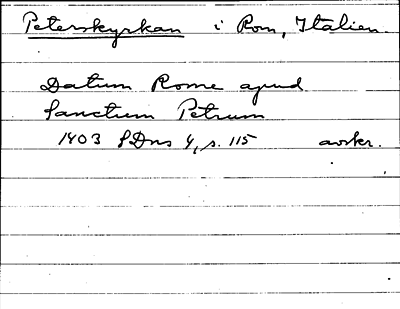 Peterskyrkan i Rom, Italien.
Datum Rome apud
Sanctum Petrum
1403 SDns 4, s. 115 avskr.